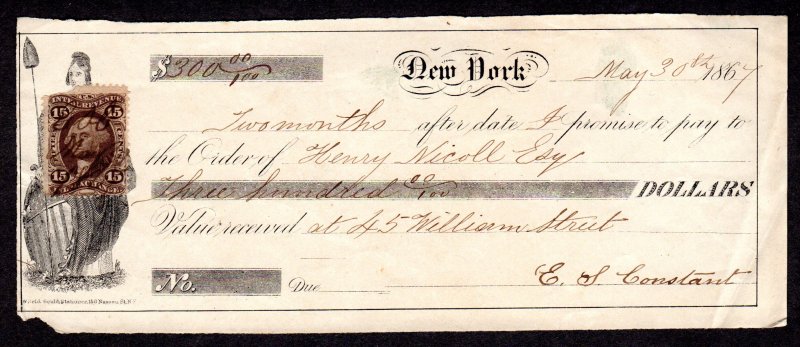 $300 00/100 New York May 30th 1867
Two months after date I promise to pay to
the Order of Henry Nicoll Esq
Three hundred 00/100 DOLLARS
Value received at 45 William Street
No. Due E. S. Constant
INT. REVENUE
15 15
15 15
Nassau St. N.Y.